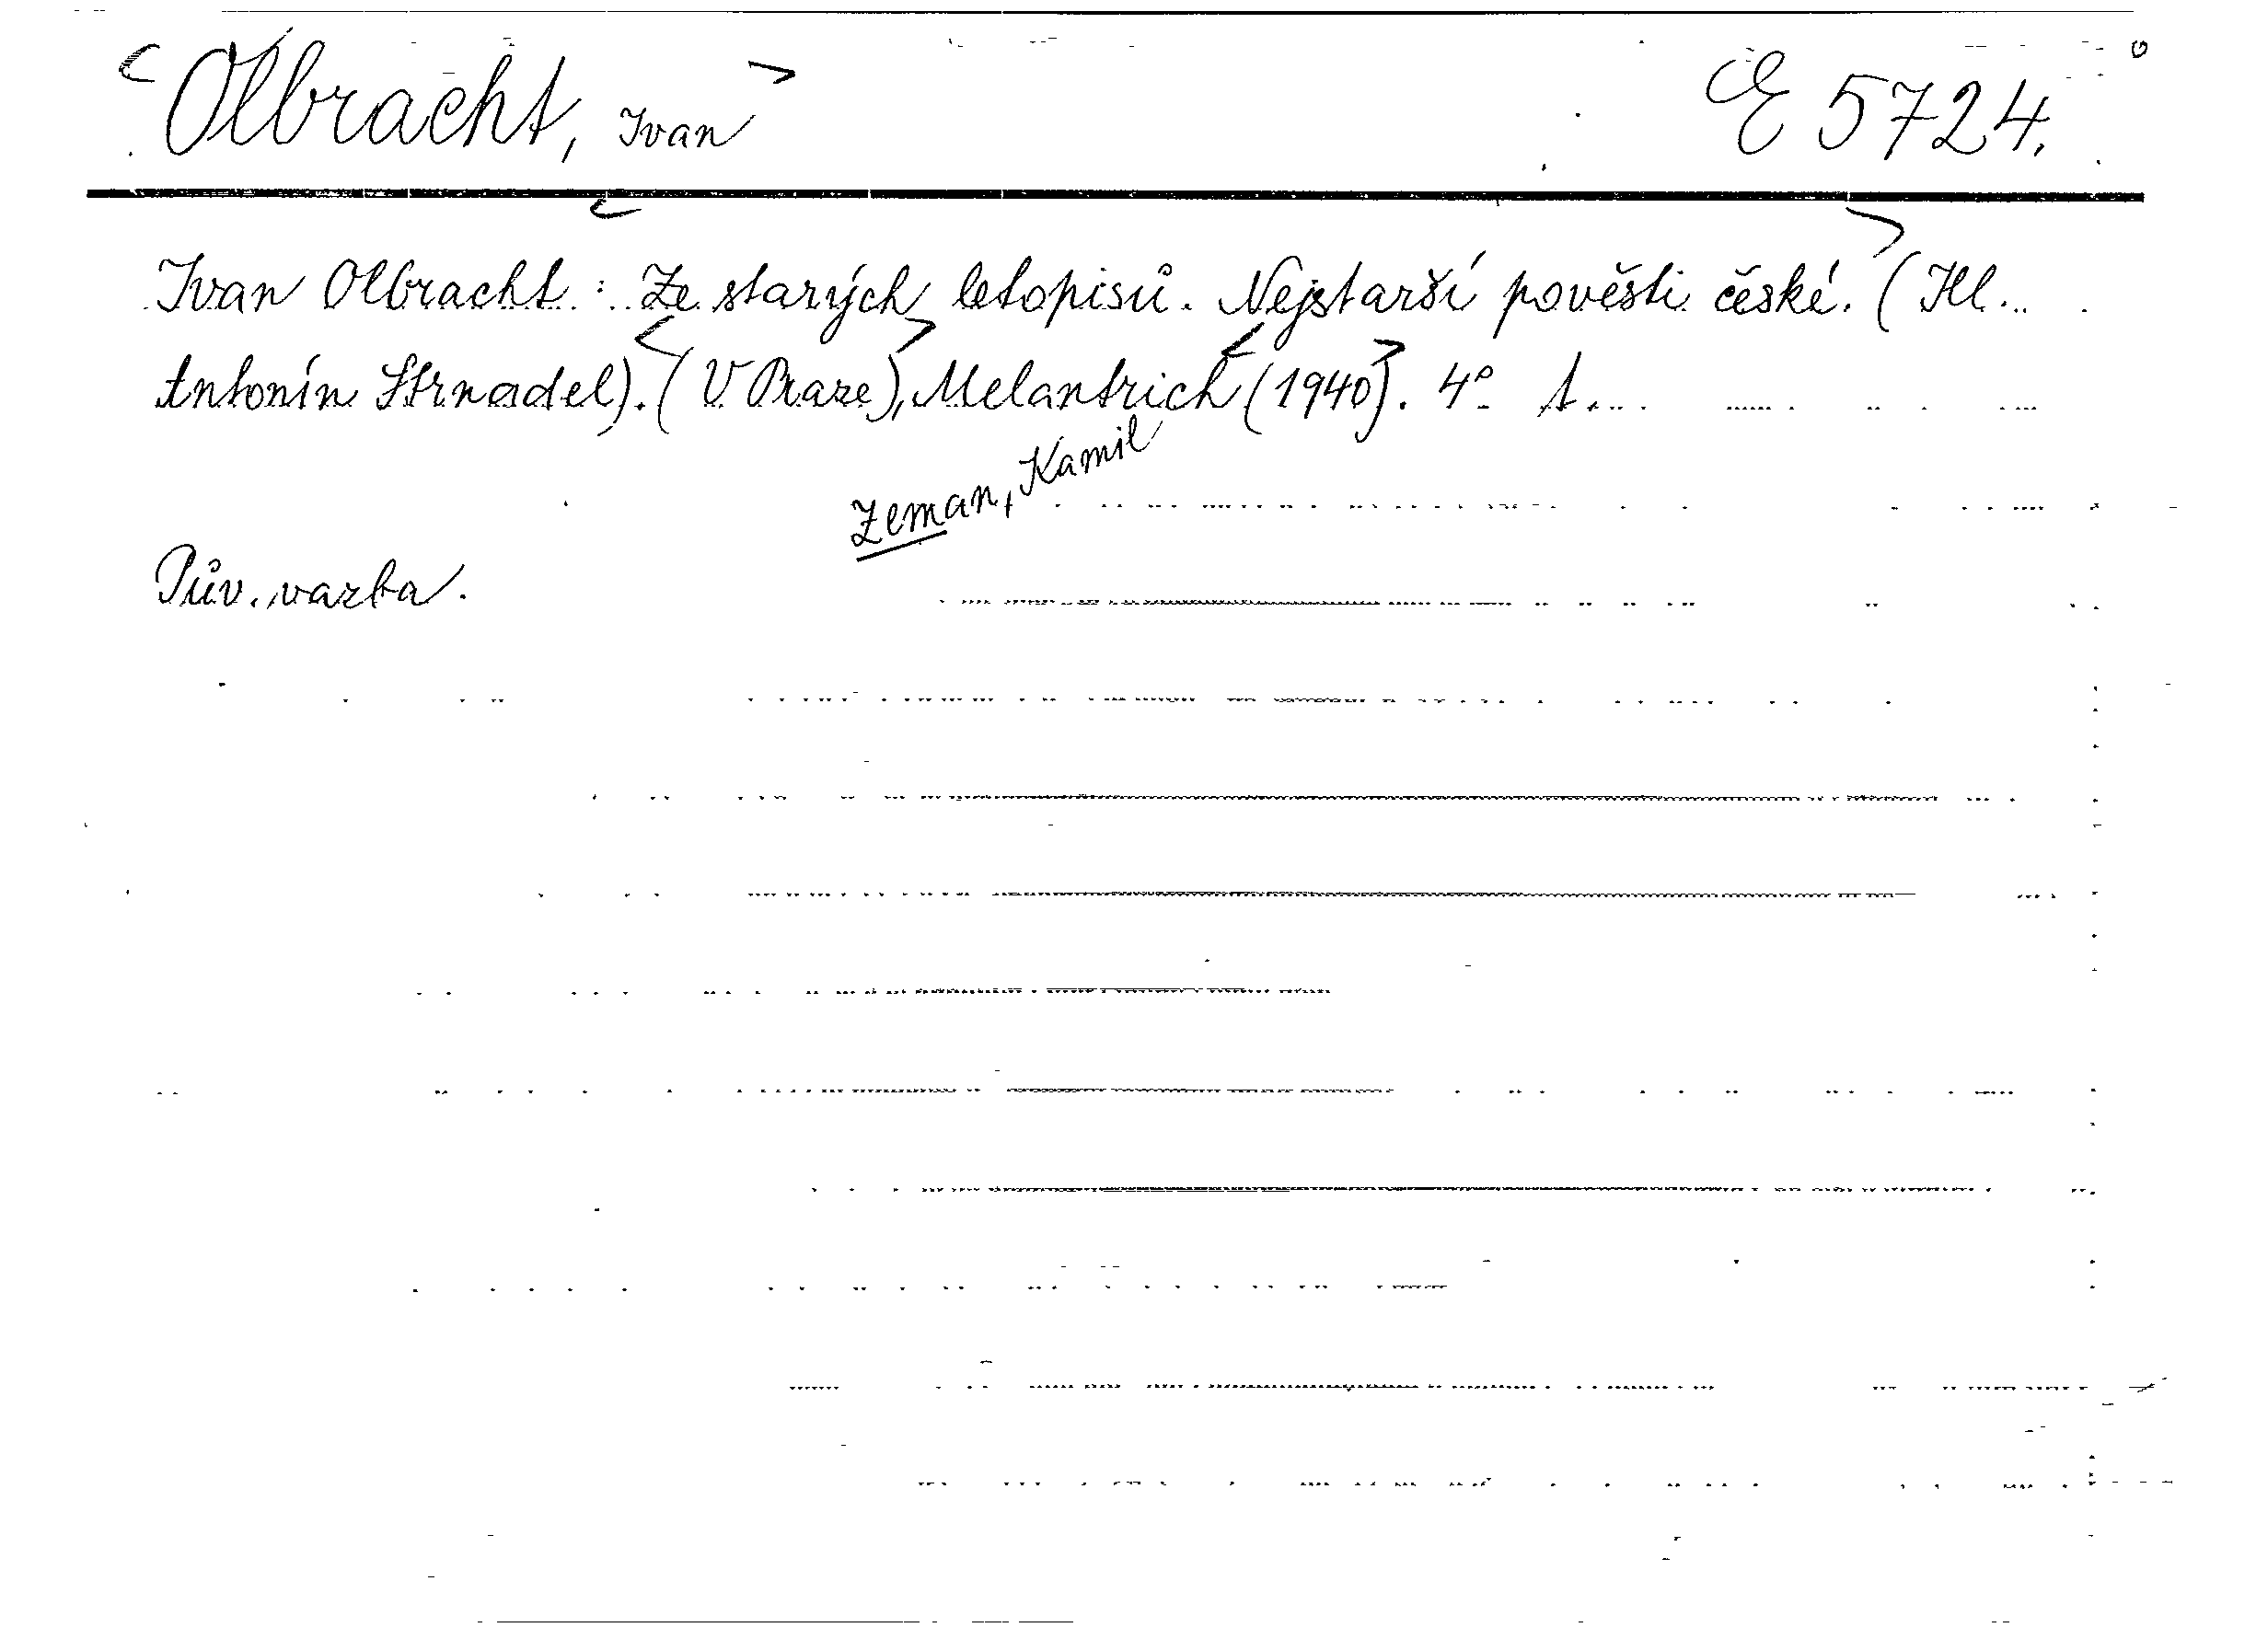 <Olbracht, Ivan> E 5724.
Ivan Olbracht: <Ze starých letopisů. Nejstarší pověsti české.> (Ill.
Antonín Strnadel). <(V Praze)>, Melantrich <(1940)>. 4° 1.
Zeman, Kamil
Pův. vazba.